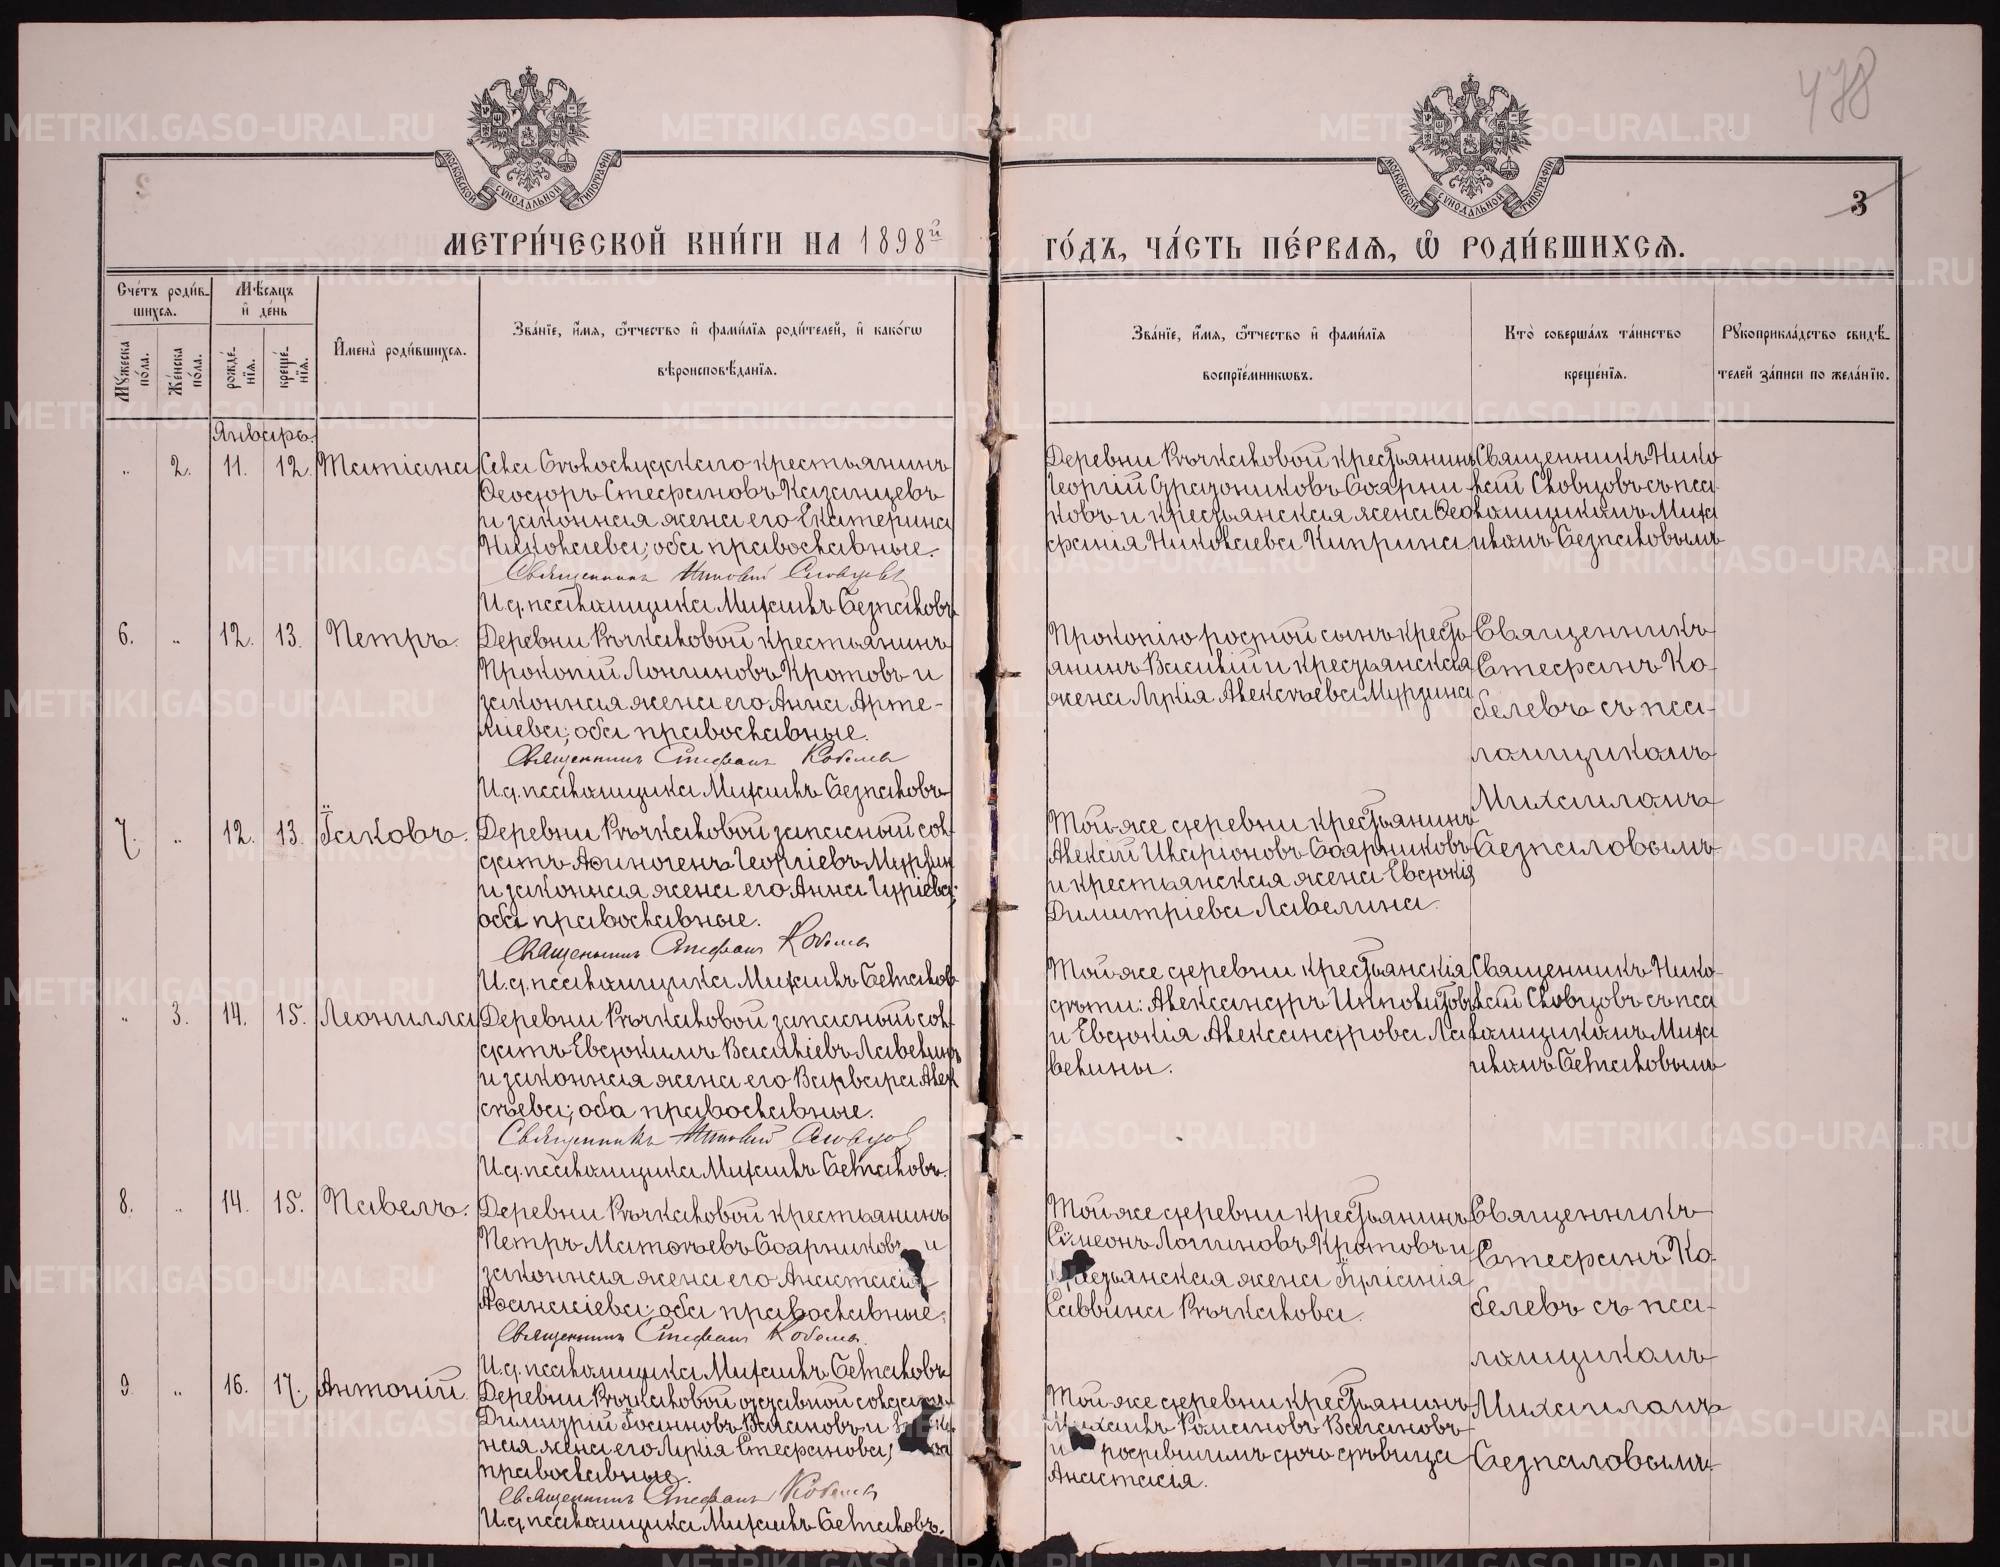 478
3
МОСКОВСКОЙ СУНОДАЛЬНОЙ ТИПОГРАФІИ
МОСКОВСКОЙ СУНОДАЛЬНОЙ ТИПОГРАФІИ
МЕТРИ́ЧЕСКОЙ КНИ́ГИ НА 1898й
ГО́ДЪ, ЧА́СТЬ ПЕ́РВАѦ, Ѡ РОДИ́ВШИХСѦ.
Сче́тъ роди́в-
шихсѧ.
Мѣ́сѧцъ
и де́нь
Мꙋ́жеска по́ла.
Же́нска по́ла.
рожде́-
нїѧ.
креще́-
нїѧ.
Имена̀ роди́вшихсѧ.
Зва́нїе, и́мѧ, ѻ́тчество и фами́лїѧ роди́телей, и како́гѡ
вѣроисповѣ́данїѧ.
Зва́нїе, и́мѧ, ѻ́тчество и фами́лїѧ
воспрїе́мникѡвъ.
Кто̀ соверша́лъ та́инство
креще́нїѧ.
Рꙋкоприкла́дство свидѣ́-
телей за́писи по жела́нїю.
Январь.
" 2. 11. 12. Татіана
Села
крестьянинъ
Ѳеодоръ Стефановъ Казанцевъ
и законная жена его Екатерина
Николаева; оба православные.
Священникъ Николай Словцовъ
И.д. псаломщика Михаилъ Безпаловъ
Деревни Рѣчкаловой крестьянинъ
Георгій Боярни
ковъ и крестьянская жена Ѳео
фанія Николаева Киприна
Священникъ Нико
лай Словцовъ съ пса
ломщикомъ Миха
иломъ Безпаловымъ
6. " 12. 13. Петръ.
Деревни Рѣчкаловой крестьянинъ
Прокопій Логиновъ Кротовъ и
законная жена его Анна Арте-
міева; оба православные.
Священникъ Стефанъ Кобелевъ
И.д. псаломщика Михаилъ Безпаловъ
Прокопію родной сынъ кресть
янинъ Василій и крестьянская
жена Лукія Алексѣева Мурзина
Священникъ
Стефанъ Ко-
белевъ съ пса-
ломщикомъ
Михаиломъ
Безпаловымъ
7. " 12. 13. Іаковъ.
Деревни Рѣчкаловой запасный сол-
датъ Аѳиногенъ Георгіевъ Мурзин
и законная жена его Анна Гуріева;
оба православные.
Священникъ Стефанъ Кобелевъ
И.д. псаломщика Михаилъ Безпаловъ
Той-же деревни крестьянинъ
Алексій Иларіоновъ Боярниковъ
и крестьянская жена Евдокія
Димитріева Лавелина.
" 3. 14. 15. Леонилла
Деревни Рѣчкаловой запасный сол-
датъ Евдокимъ Василіевъ Лавелинъ
и законная жена его Варвара Алек
сѣева; оба православные.
Священникъ Николай Словцовъ
И.д. псаломщика Михаилъ Безпаловъ.
Той-же деревни крестьянскія
дѣти: Александръ Ипполитовъ
и Евдокія Александрова Ла
велины.
Священникъ Нико-
лай Словцовъ съ пса
ломщикомъ Миха
иломъ Безпаловымъ
8. " 14. 15. Павелъ.
Деревни Рѣчкаловой крестьянинъ
Петръ Матѳѣевъ Боярниковъ и
законная жена его Анастасія
Аѳанасіева; оба православные.
Священникъ Стефанъ Кобелевъ
И.д. псаломщика Михаилъ Безпаловъ
Той-же деревни крестьянинъ
Сѷмеонъ Логиновъ Кротовъ и
крестьянская жена Іуліанія
Саввина Рѣчкалова.
Священникъ
Стефанъ Ко-
белевъ съ пса-
ломщикомъ
Михаиломъ
Безпаловымъ
9 " 16. 17. Антоній
Деревни Рѣчкаловой отставной солдатъ
Димитрій Іоанновъ Вагановъ и
ная жена его Лукія Стефанова;
православные.
Священникъ Стефанъ Кобелевъ
И.д. псаломщика Михаилъ Безпаловъ.
Той-же деревни крестьянинъ
Михаилъ Романовъ Вагановъ
и родившимъ дочь дѣвица
Анастасія.
METRIKI.GASO-URAL.RU